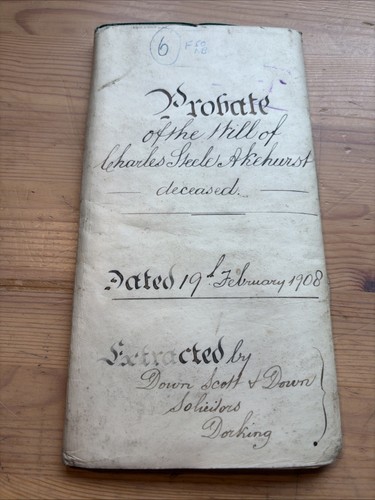 6
Probate
of the Will of
Charles Steele Akehurst
deceased.
Dated 19th February 1908
Extracted by
Down Scott & Down
Solicitors
Dorking